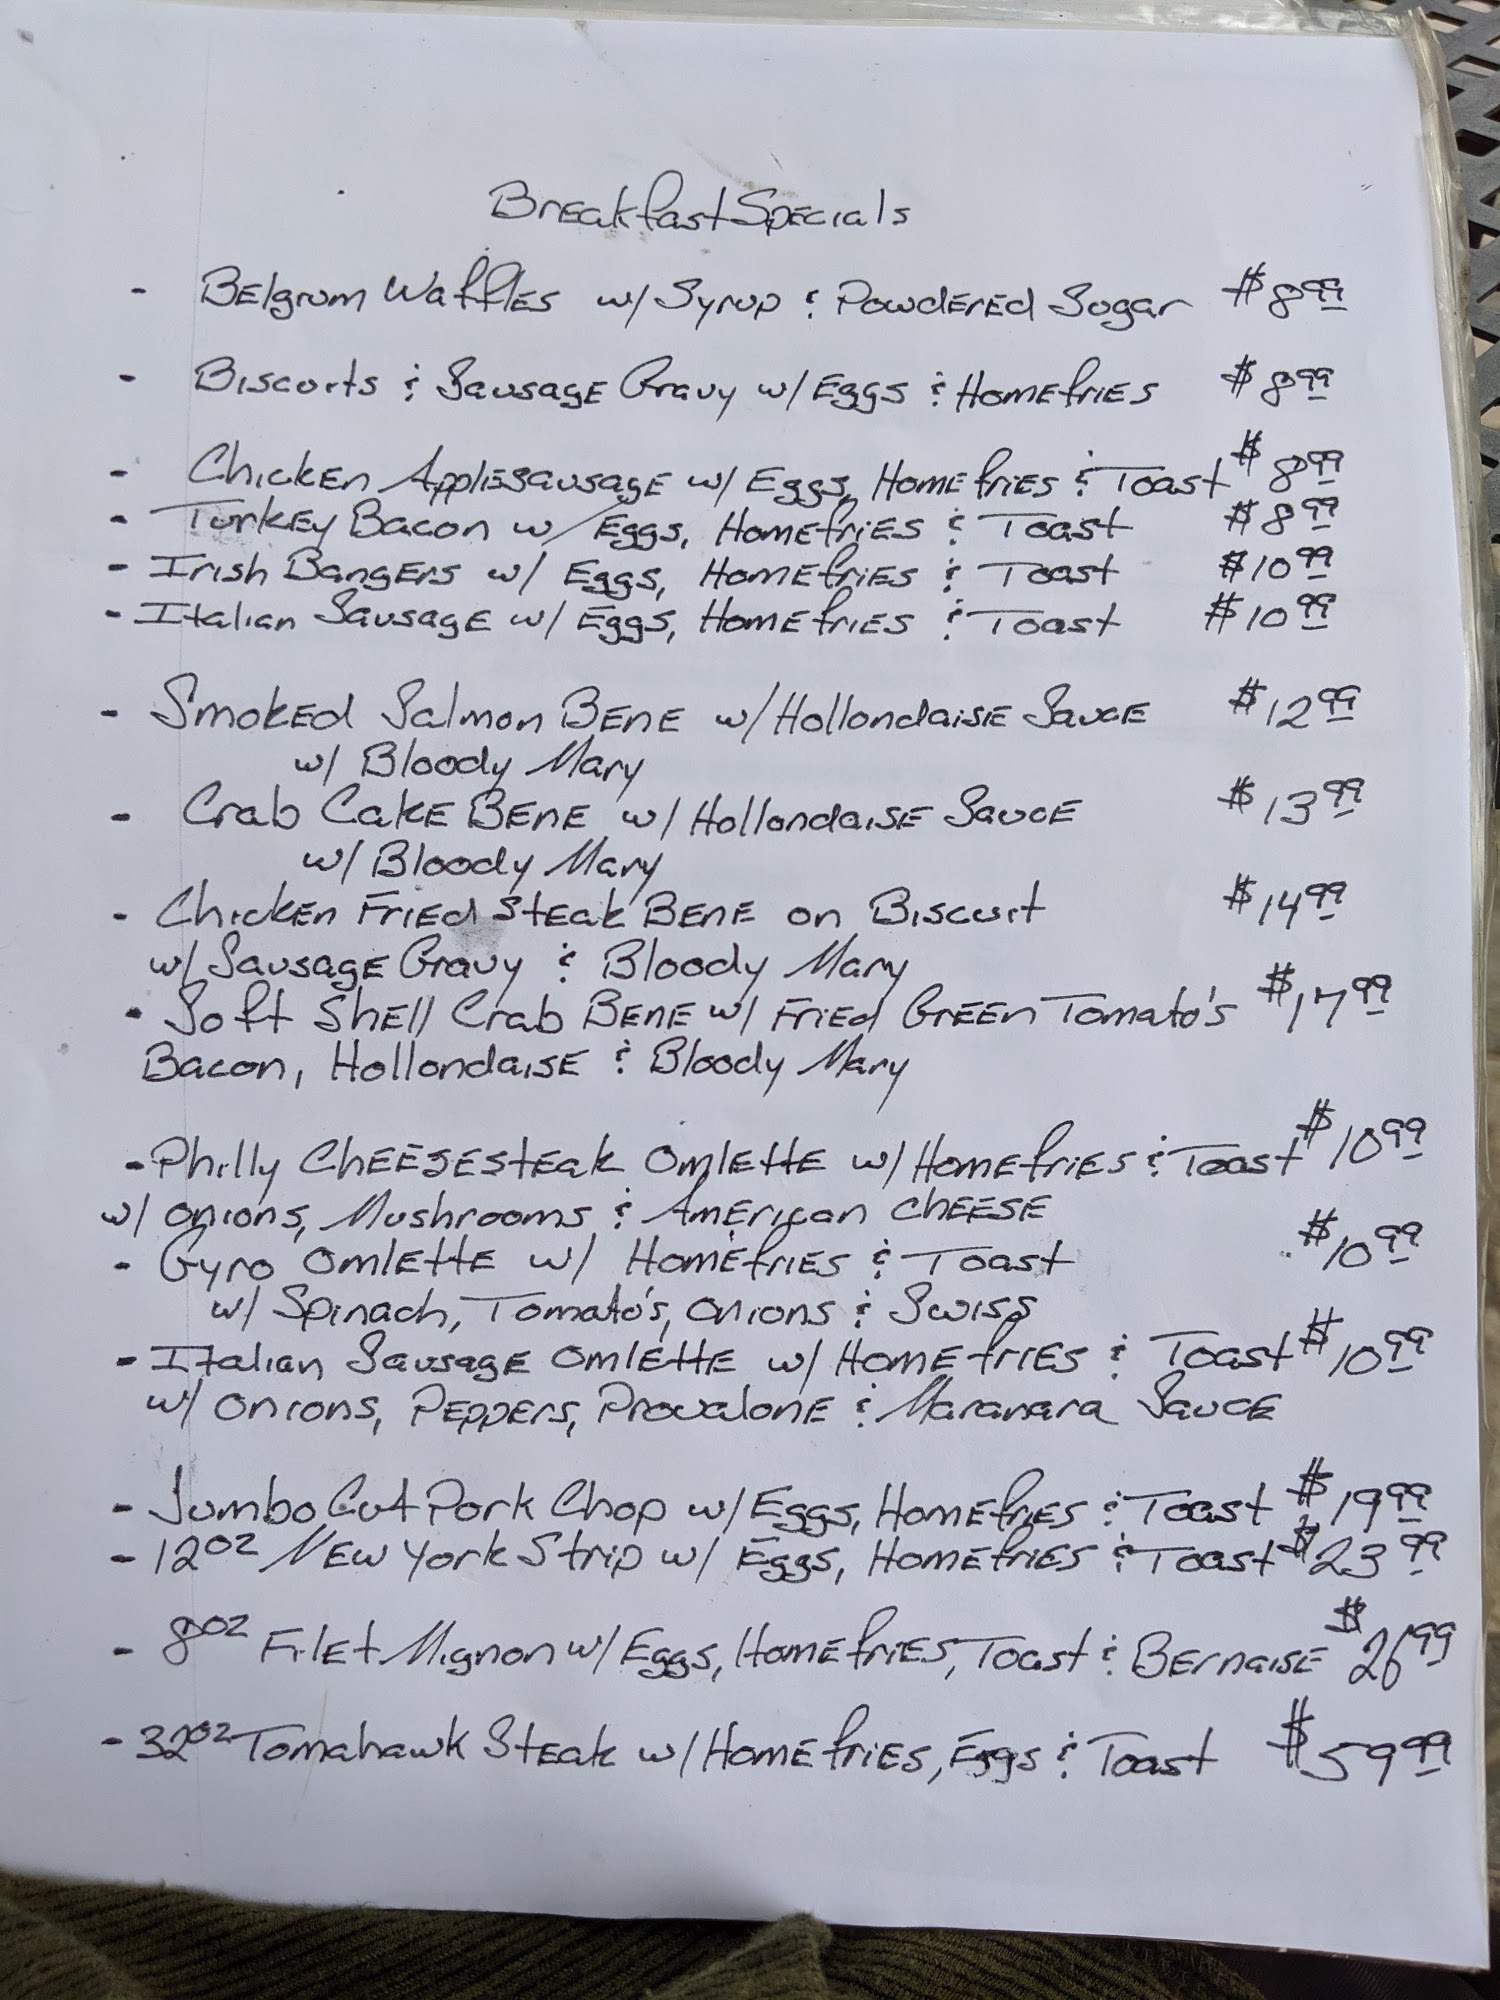 Breakfast Specials
- Belgium Waffles w/ Syrup & Powdered Sugar $8.99
- Biscuits & Sausage Gravy w/ Eggs & Homefries $8.99
- Chicken Applesausage w/ Eggs, Homefries & Toast $8.99
- Turkey Bacon w/ Eggs, Homefries & Toast $8.99
- Irish Bangers w/ Eggs, Homefries & Toast $10.99
- Italian Sausage w/ Eggs, Homefries & Toast $10.99
- Smoked Salmon Bene w/ Hollondaise Sauce $12.99
w/ Bloody Mary
- Crab Cake Bene w/ Hollondaise Sauce $13.99
w/ Bloody Mary
- Chicken Fried Steak Bene on Biscuit $14.99
w/ Sausage Gravy & Bloody Mary
- Soft Shell Crab Bene w/ Fried Green Tomato's $17.99
Bacon, Hollondaise & Bloody Mary
- Philly Cheesesteak Omlette w/ Homefries & Toast $10.99
w/ Onions, Mushrooms & American Cheese
- Gyro Omlette w/ Homefries & Toast $10.99
w/ Spinach, Tomato's, Onions & Swiss
- Italian Sausage Omlette w/ Homefries & Toast $10.99
w/ Onions, Peppers, Provalone & Maranara Sauce
- Jumbo Cut Pork Chop w/ Eggs, Homefries & Toast $19.99
- 12oz New York Strip w/ Eggs, Homefries & Toast $23.99
- 8oz Filet Mignon w/ Eggs, Homefries, Toast & Bernaise $26.99
- 32oz Tomahawk Steak w/ Homefries, Eggs & Toast $59.99